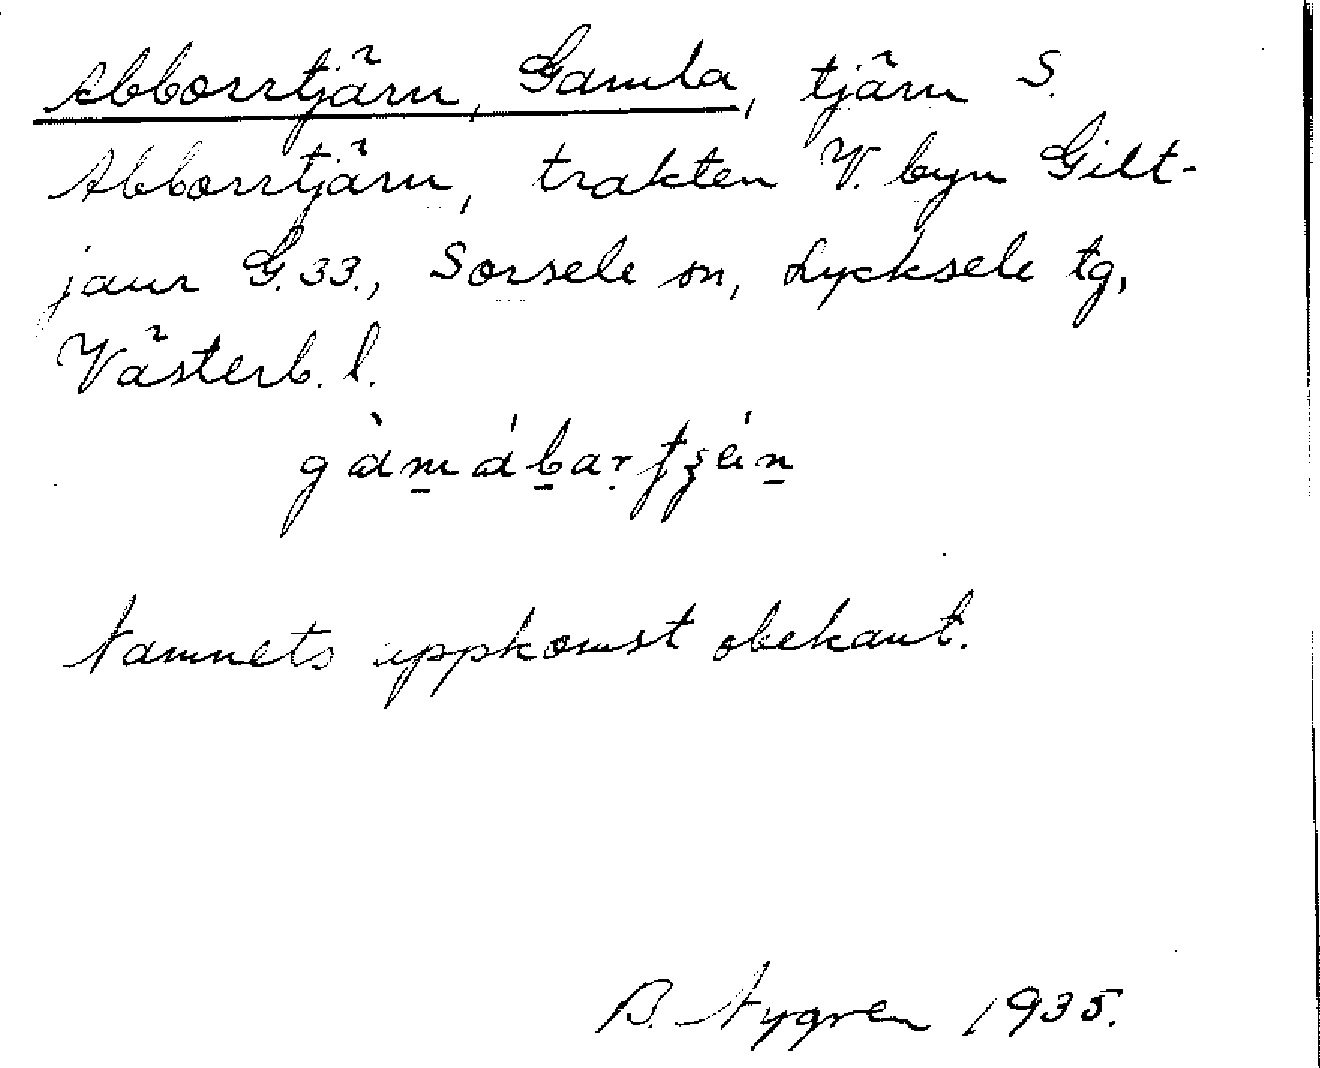 Abborrtjärn, Gamla, tjärn S.
Abborrtjärn, trakten V. byn Gilt-
jaur G.33., Sorsele sn, Lycksele tg,
Västerb. l.
Namnets uppkomst obekant.
B. Nygren 1935.